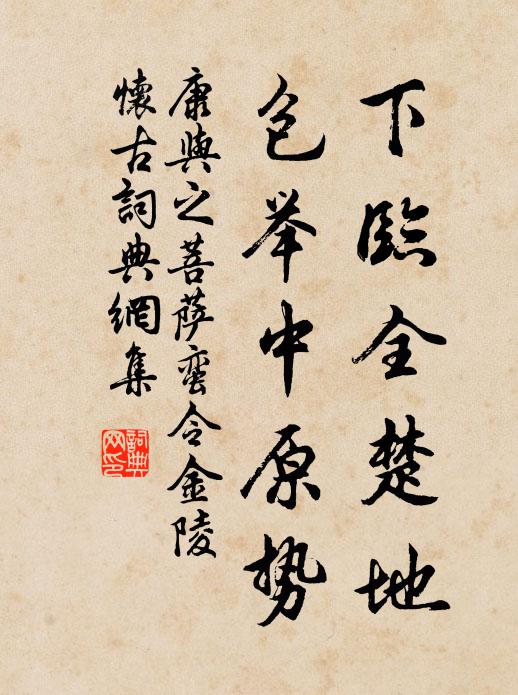 下臨全楚地
包举中原势
康與之菩萨蛮令金陵
懷古詞典網集
詞典网印